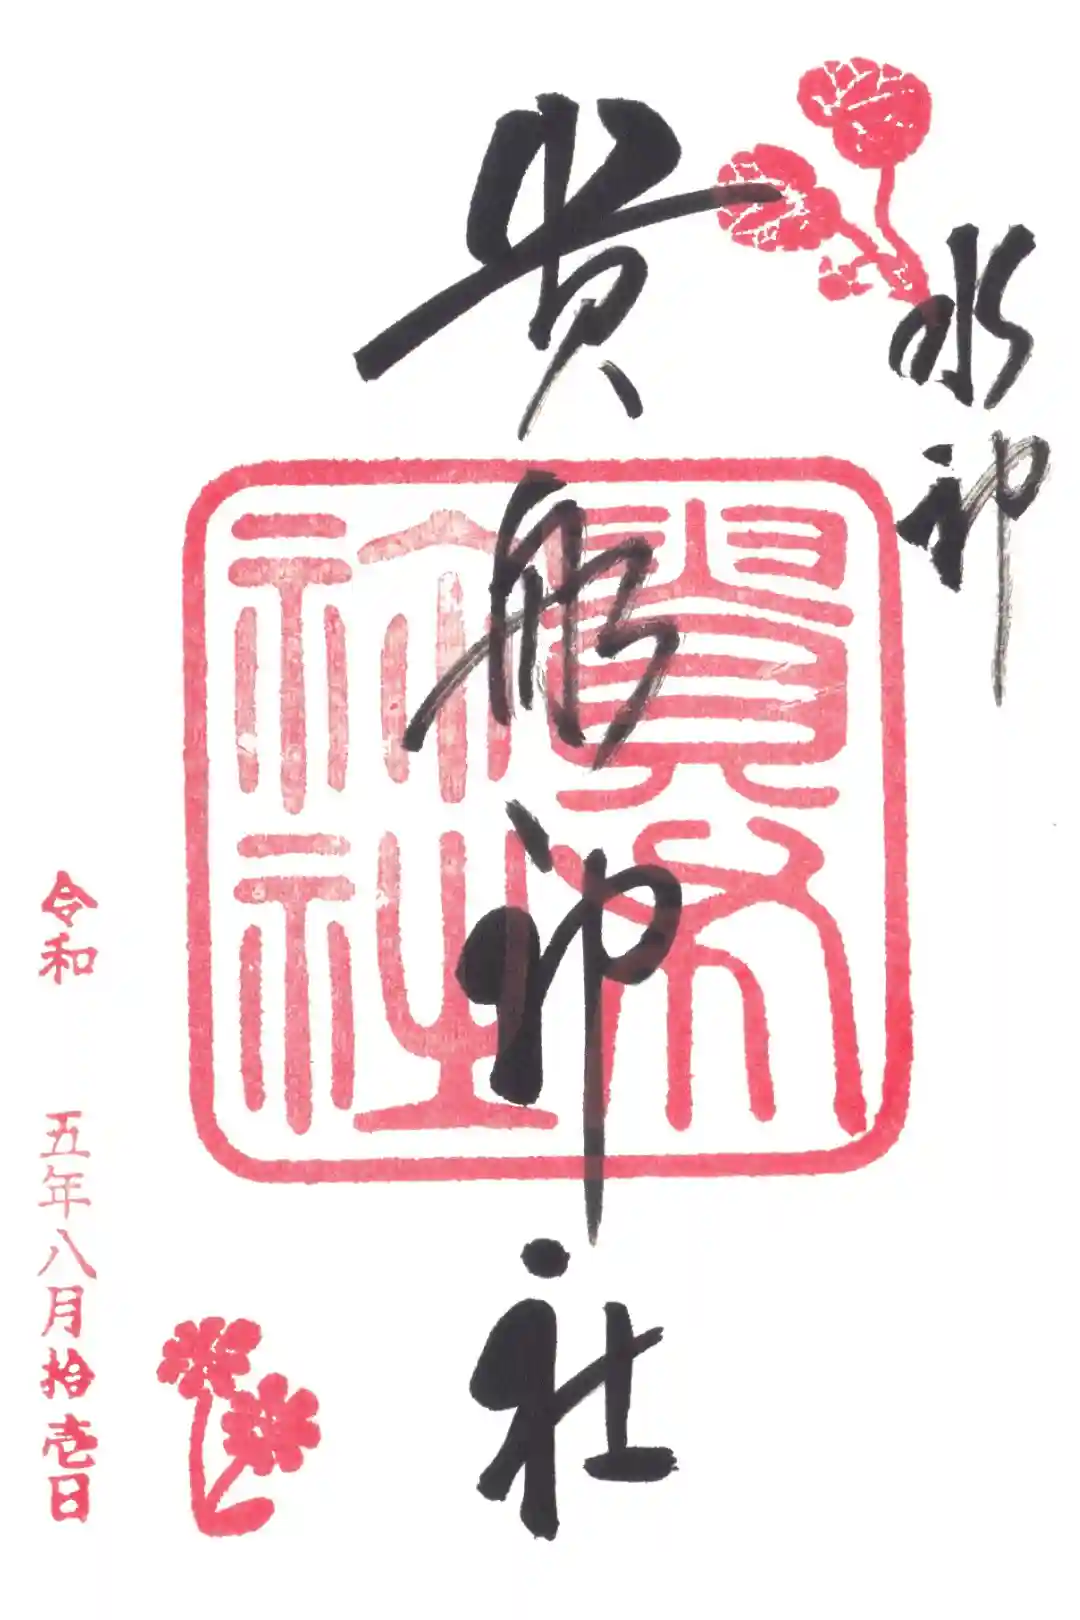 水神
貴船神社
貴布
祢社
令和 五年八月拾壱日